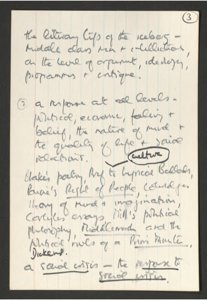 ③
the literary tips of the iceberg –
middle class men & intellectuals,
on the level of argument, ideology,
programmes & critique.
① a response at all levels –
political, economic, feeling &
belief, the nature of mind &
the quality of life & social
relations.
culture
Blake's poetry, Pref to Lyrical Ballads,
Paine's Right of People, Coleridge's
theory of mind & imagination,
Carlyle's essays, Mill's political
philosophy, Middlemarch and the
political novels of a Prime Minister,
Dickens.
a social crisis – the response to
social crisis.